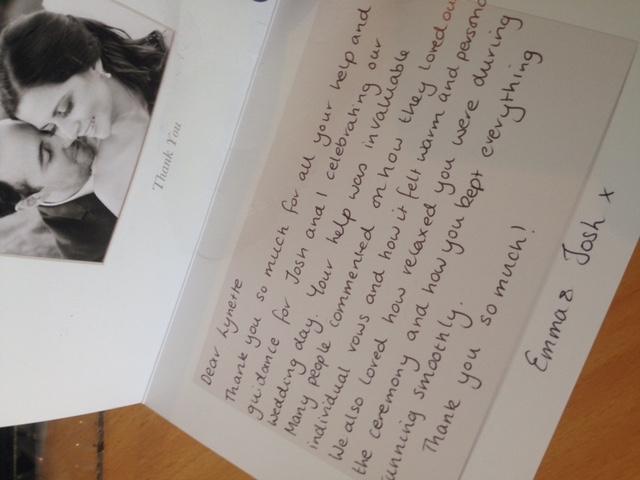 Thank You
Dear Lynette
Thank you so much for all your help and
guidance for Josh and I celebrating our
wedding day. Your help was invaluable
Many people commented on how they loved our
individual vows and how it felt warm and
We also loved how relaxed you were during
the ceremony and how you kept everything
running smoothly.
Thank you so much!
Emma & Josh x